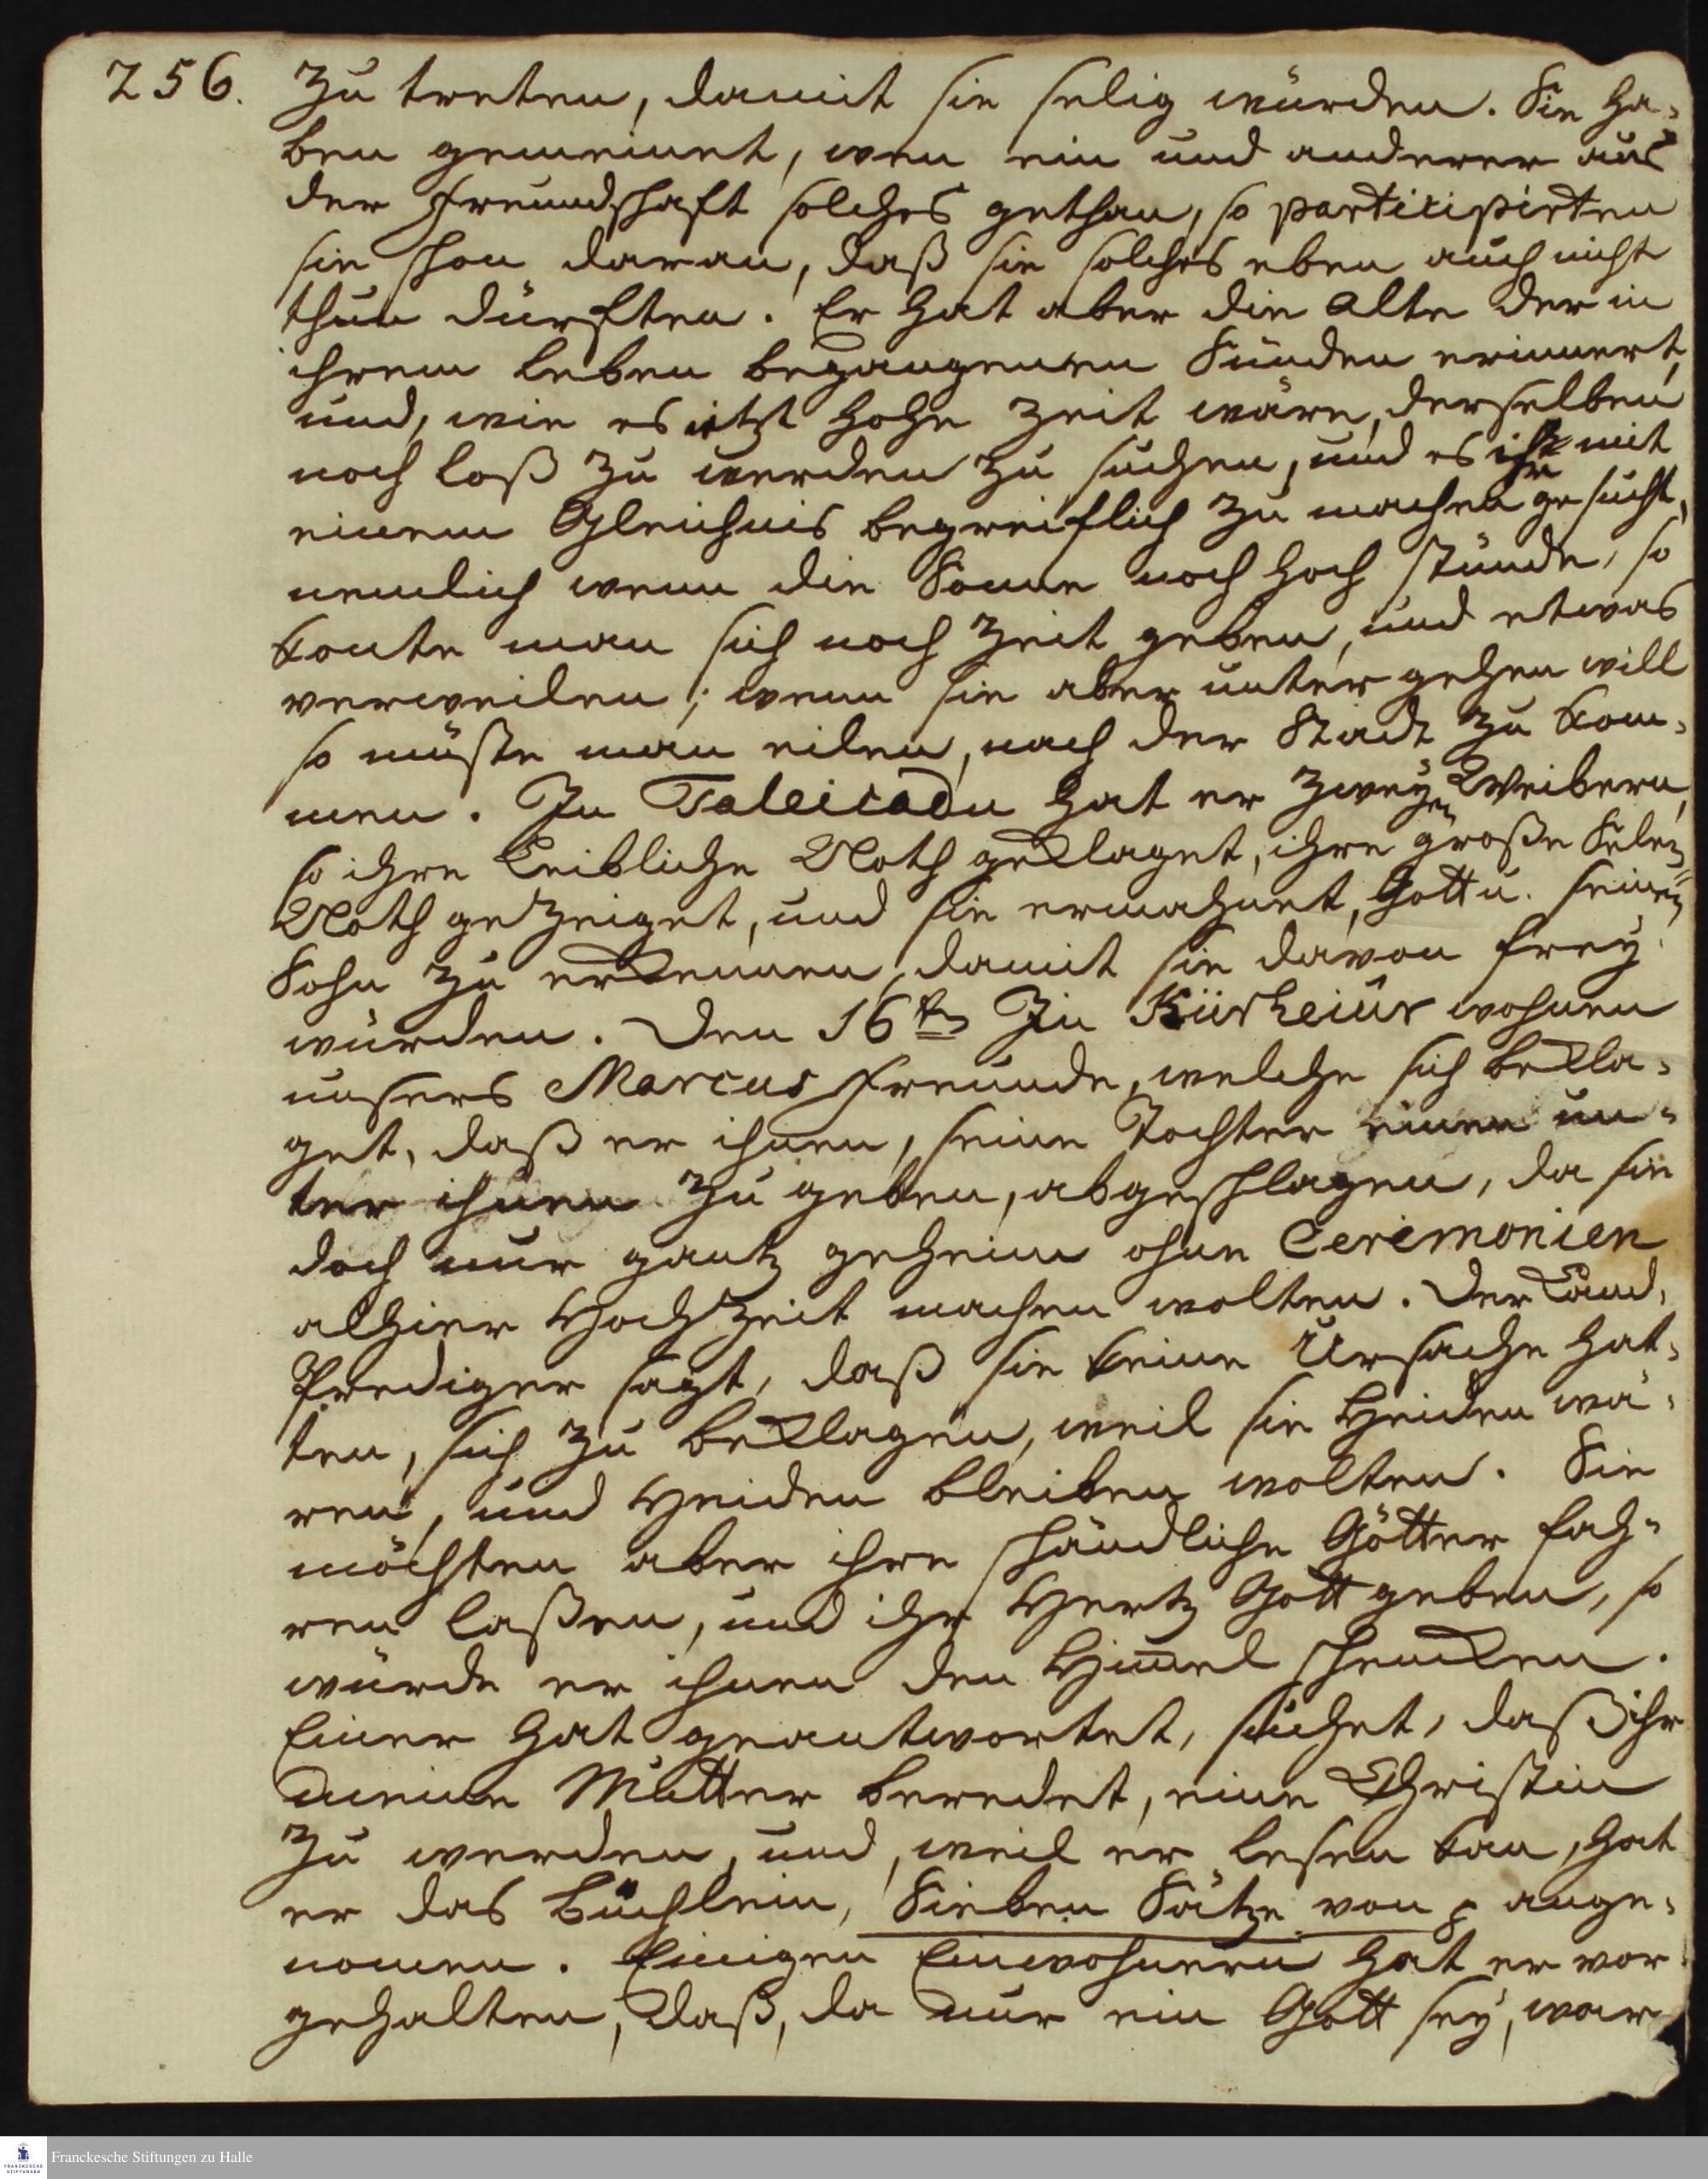 256.
zu treten, damit sie selig würden. Sie ha-
ben gemeinet, wen ein und anderer aus
der Freundschaft solches gethan, so participirten
sie schon daran, daß sie solches eben auch nicht
thun dürften. Er hat aber die Alte der in
ihrem Leben begangenen Sünden erinnert,
und, wie es itzt hohe Zeit wäre, derselben
noch loß zu werden zu suchen, und es ihr mit
einem Gleichnis begreiflich zu machen gesucht,
nemlich wenn die Sonne noch hoch stünde, so
konte man sich noch Zeit geben, und etwas
verweilen; wenn sie aber unter gehen will
so müste man eilen, nach der Stadt zu kom-
men. In Taleicadu hat er zweyen Weibern,
so ihre Leibliche Noth geklaget, ihre große Selen-
Noth gezeiget, und sie ermahnet, Gott u. seinen
Sohn zu erkennen, damit sie davon frey
würden. Den 16ten In Kürheiur wohnen
unsers Marcus Freunde, welche sich bekla-
get, daß er ihnen, seine Tochter einen un-
ter ihnen zu geben, abgeschlagen, da sie
doch nur gantz geheim ohne Ceremonien
alhier Hochzeit machen wolten. Der Land-
Prediger sagt, daß sie keine Ursache hat-
ten, sich zu beklagen, weil sie Heiden wä-
ren, und Heiden bleiben wolten. Sie
möchten aber ihre schändliche Götter fah-
ren laßen, und ihr Hertz Gott geben, so
würde er ihnen den Himel schencken.
Einer hat geantwortet, suchet, daß ihr
meine Mutter beredet, eine Christin
zu werden, und, weil er lesen kan, hat
er das Büchlein, Sieben Sätze von p ange-
nomen. Einigen Einwohnern hat er vor
gehalten, daß, da nur ein Gott sey, war
Franckesche Stiftungen zu Halle